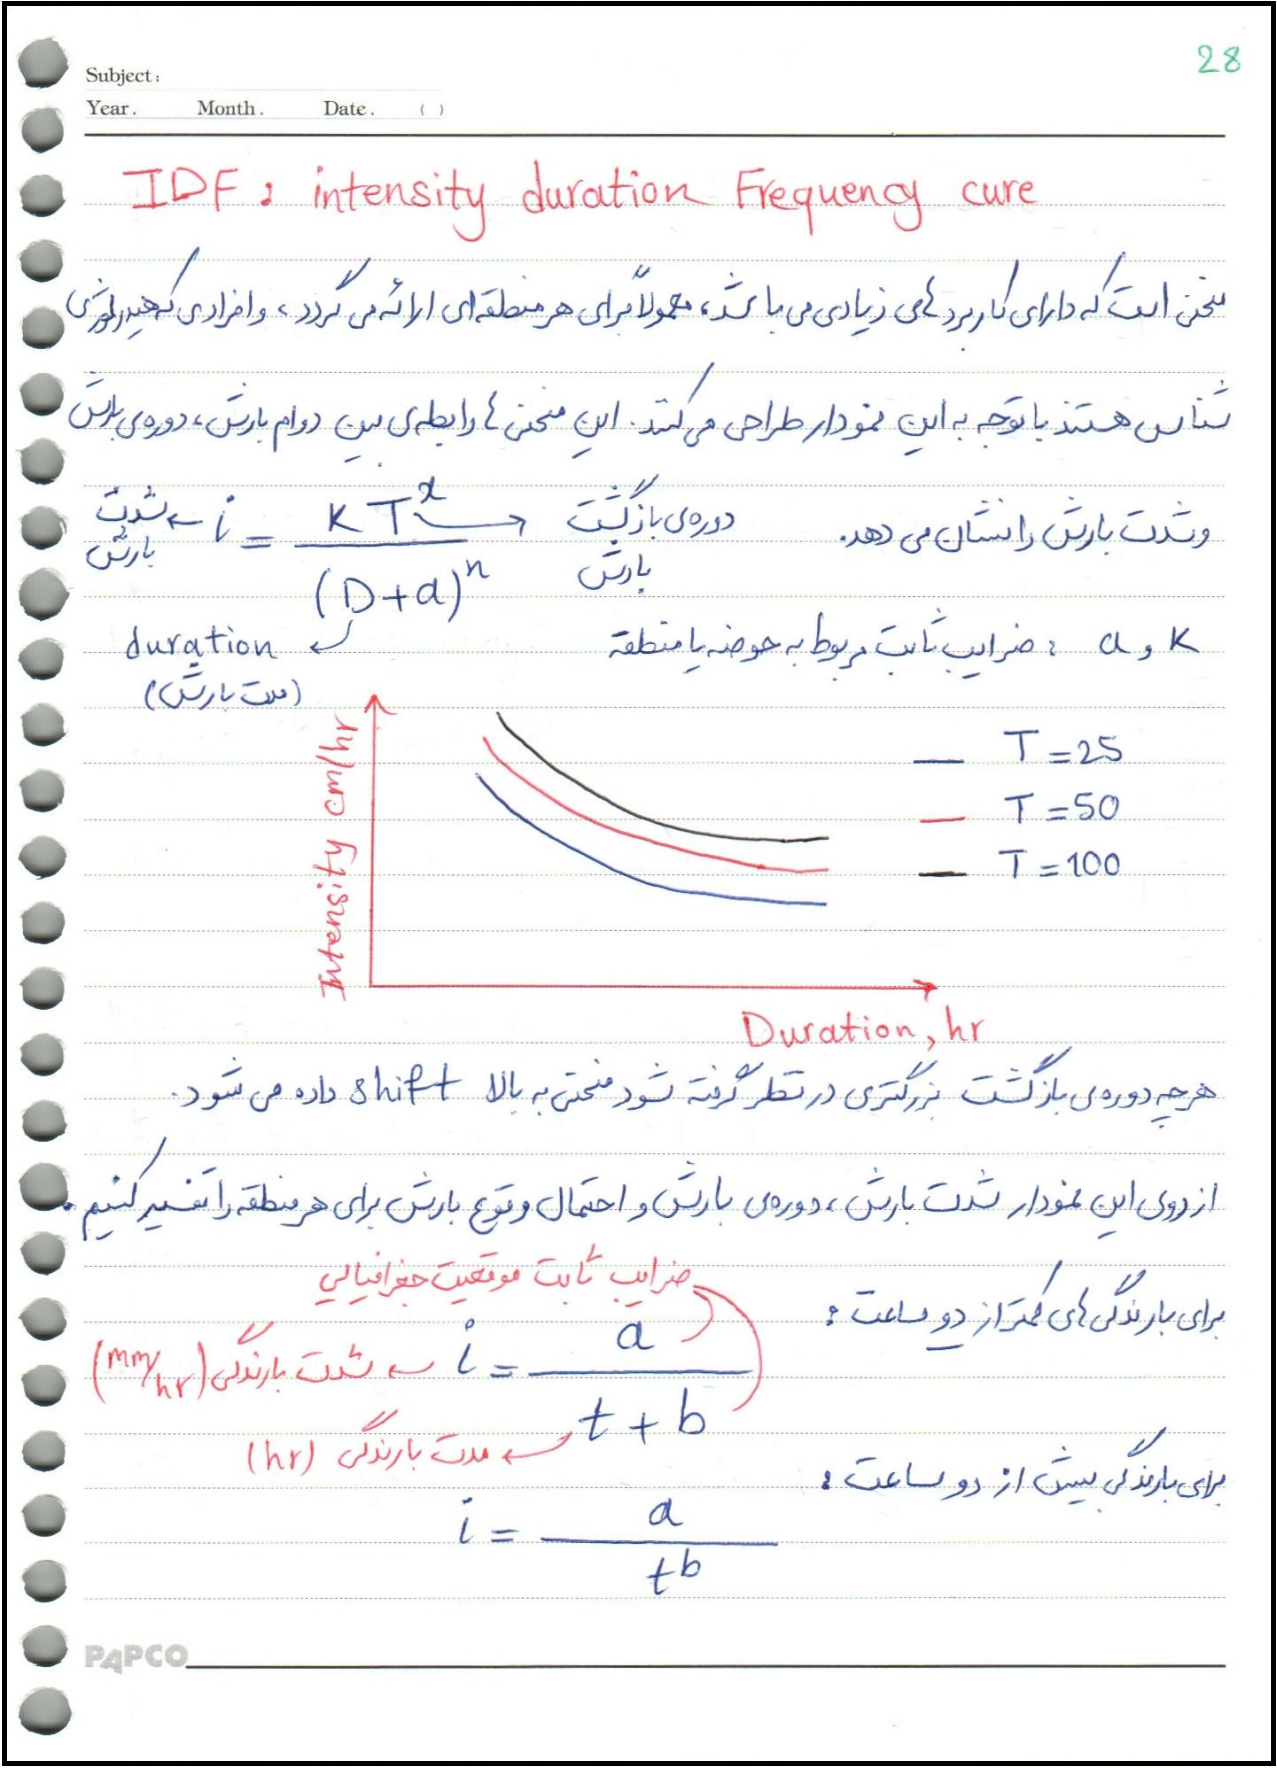 28
Subject:
Year. Month. Date. ( )
IDF : intensity duration Frequency cure
منحنی است که دارای کاربردهای زیادی می باشد، معمولاً برای هر منطقه ای ارائه می گردد، و افرادی که هیدرولوژی
شناس هستند با توجه به این نمودار طراحی می کنند. این منحنی ها رابطه ی بین دوام بارش، دوره ی بارش
و شدت بارش را نشان می دهد.
i = K T^x / (D+a)^n
شدت بارش
دوره ی بازگشت بارش
duration
(مدت بارش)
K و a : ضرایب ثابت مربوط به حوضه یا منطقه
Intensity cm/hr
T = 25
T = 50
T = 100
Duration, hr
هرچه دوره ی بازگشت بزرگتری در نظر گرفته شود منحنی به بالا shift داده می شود.
از روی این نمودار شدت بارش، دوره ی بارش و احتمال وقوع بارش برای هر منطقه را تفسیر کنیم.
ضرایب ثابت موقعیت جغرافیایی
برای بارندگی های کمتر از دو ساعت :
i = a / t + b
شدت بارندگی (mm/hr)
مدت بارندگی (hr)
برای بارندگی بیش از دو ساعت :
i = a / t^b
PAPCO